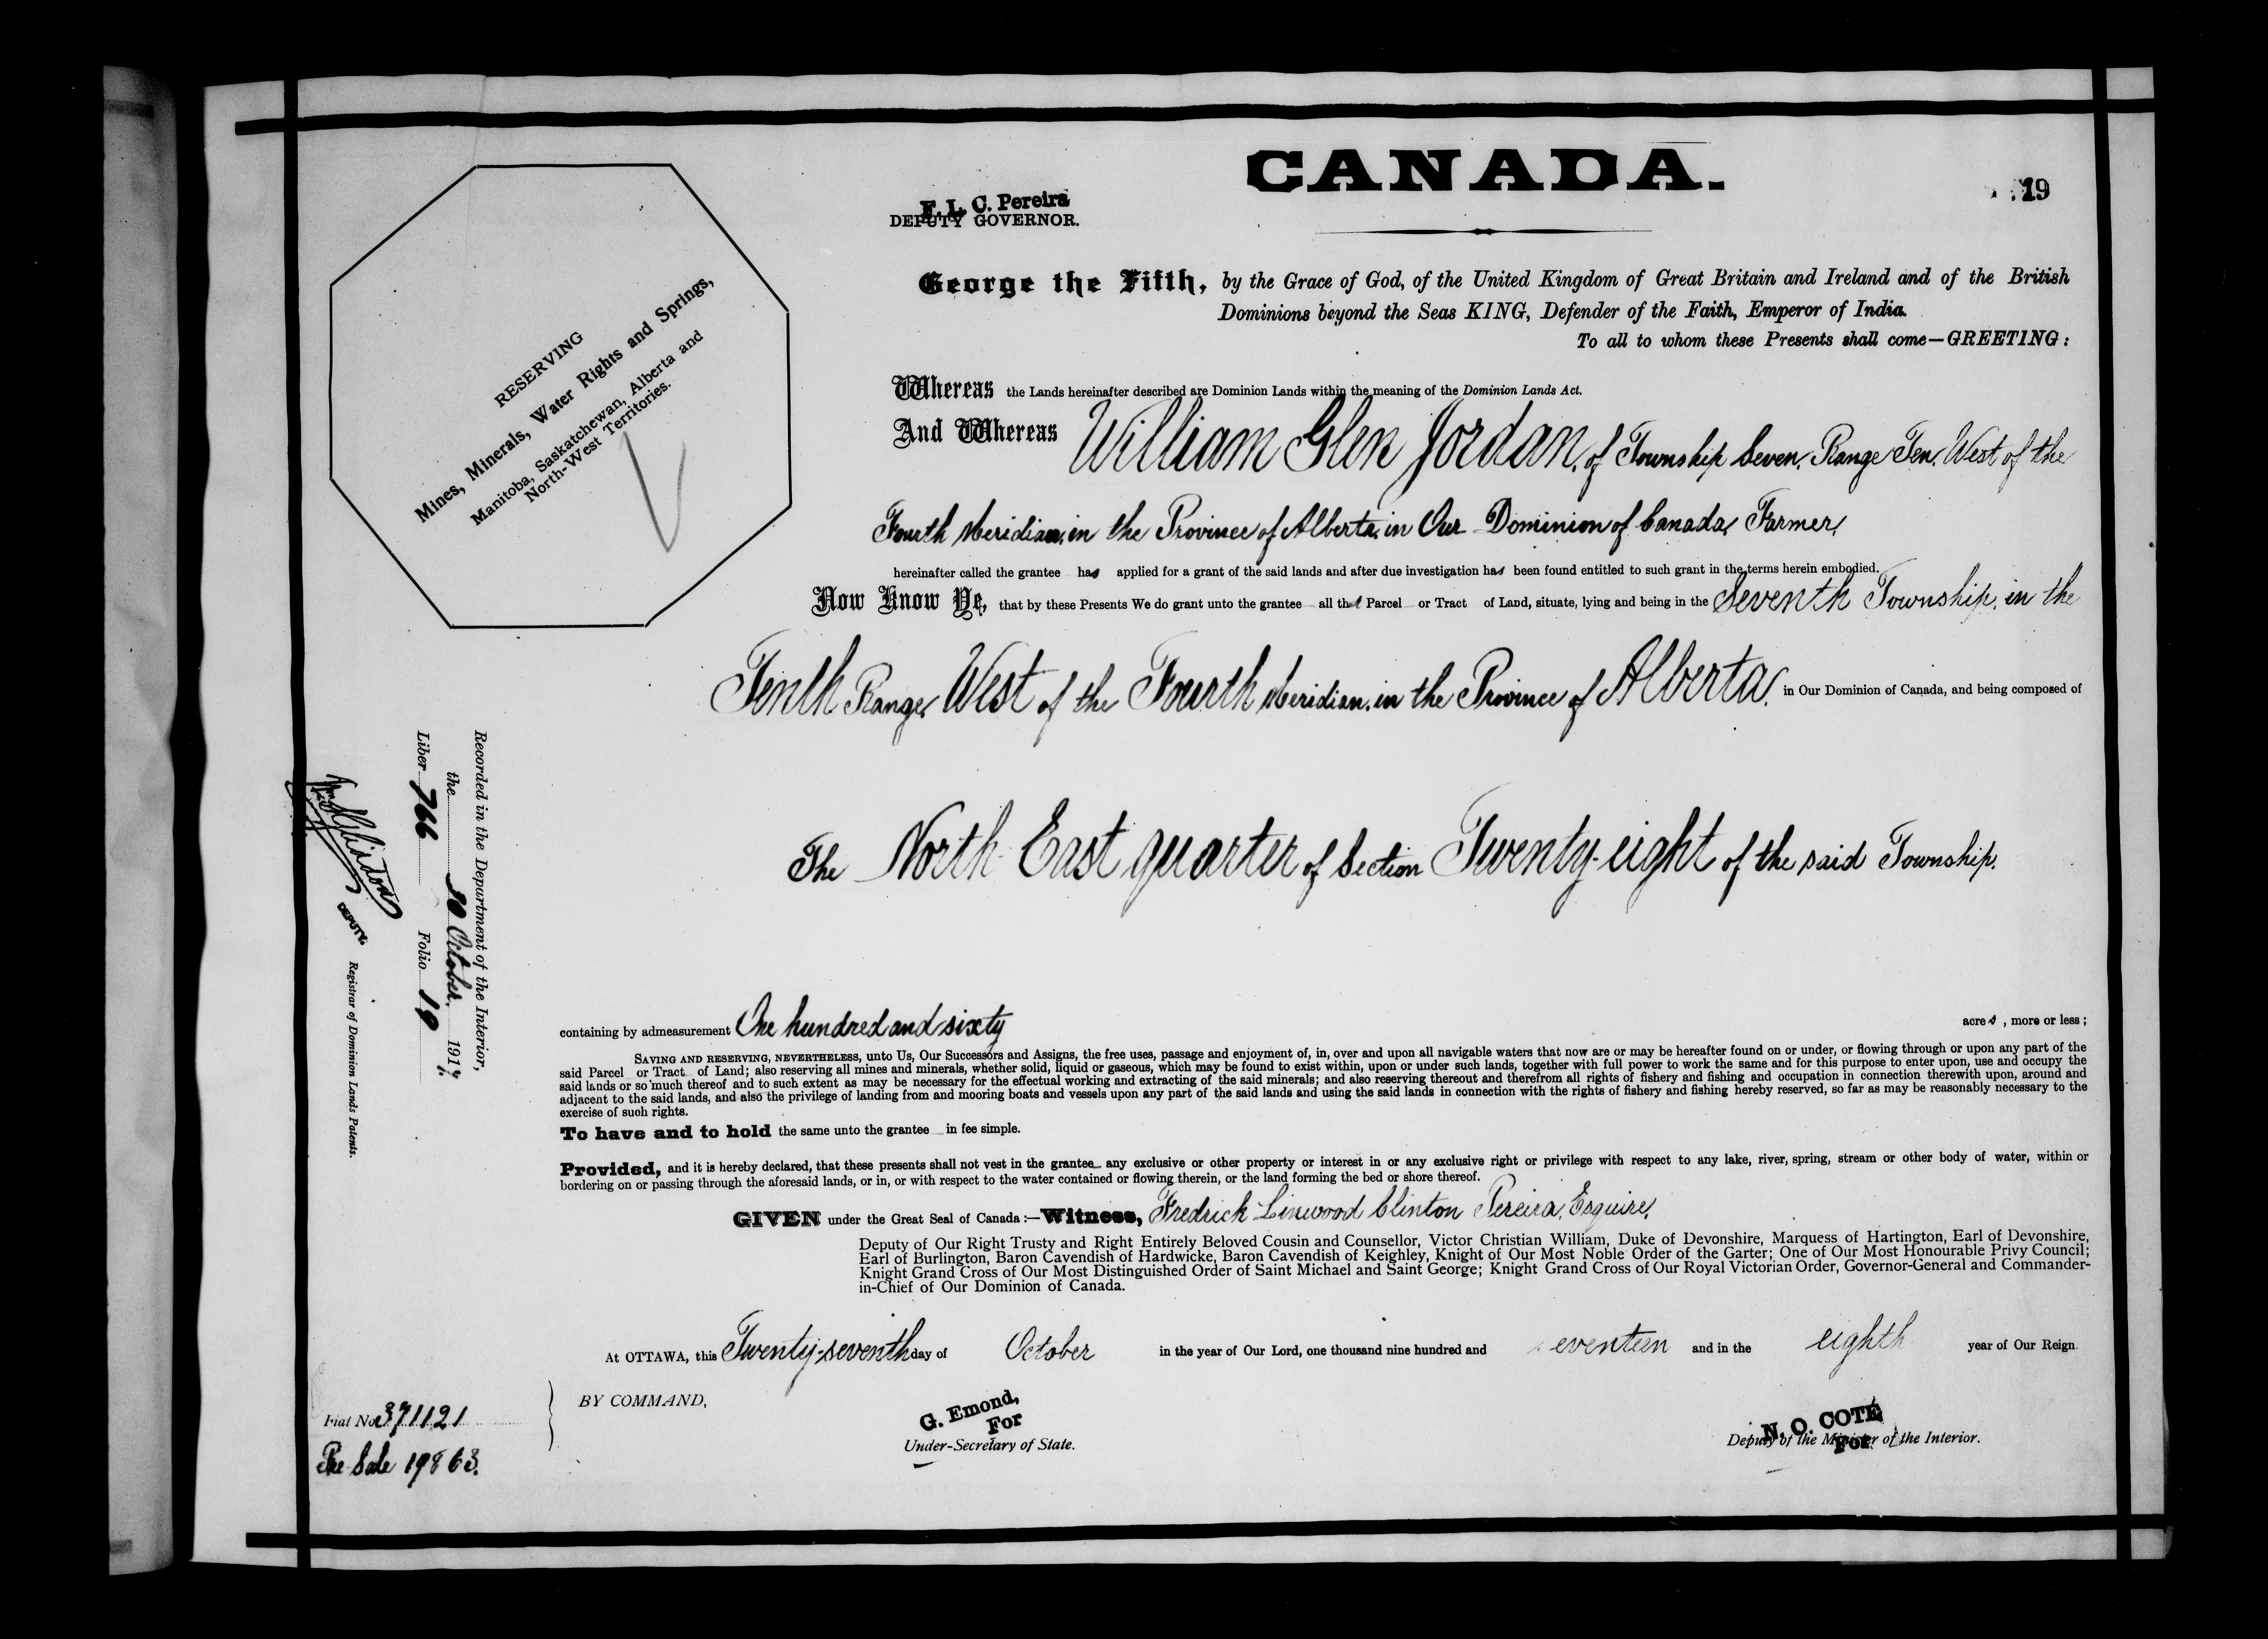 CANADA.
19
F. L. C. Pereira
DEPUTY GOVERNOR.
George the Fifth, by the Grace of God, of the United Kingdom of Great Britain and Ireland and of the British
Dominions beyond the Seas KING, Defender of the Faith, Emperor of India.
To all to whom these Presents shall come—GREETING:
RESERVING
Mines, Minerals, Water Rights and Springs,
Manitoba, Saskatchewan, Alberta and
North-West Territories.
Whereas the Lands hereinafter described are Dominion Lands within the meaning of the Dominion Lands Act.
And Whereas William Glen Jordan, of Township Seven, Range Ten, West of the
Fourth Meridian, in the Province of Alberta, in Our Dominion of Canada, Farmer,
hereinafter called the grantee has applied for a grant of the said lands and after due investigation has been found entitled to such grant in the terms herein embodied.
Now Know Ye, that by these Presents We do grant unto the grantee all that Parcel or Tract of Land, situate, lying and being in the Seventh Township, in the
Tenth Range, West of the Fourth Meridian, in the Province of Alberta, in Our Dominion of Canada, and being composed of
The North East quarter of Section Twenty-eight of the said Township.
containing by admeasurement One hundred and sixty acres, more or less;
SAVING AND RESERVING, NEVERTHELESS, unto Us, Our Successors and Assigns, the free uses, passage and enjoyment of, in, over and upon all navigable waters that now are or may be hereafter found on or under, or flowing through or upon any part of the
said Parcel or Tract of Land; also reserving all mines and minerals, whether solid, liquid or gaseous, which may be found to exist within, upon or under such lands, together with full power to work the same and for this purpose to enter upon, use and occupy the
said lands or so much thereof and to such extent as may be necessary for the effectual working and extracting of the said minerals; and also reserving thereout and therefrom all rights of fishery and fishing and occupation in connection therewith upon, around and
adjacent to the said lands, and also the privilege of landing from and mooring boats and vessels upon any part of the said lands and using the said lands in connection with the rights of fishery and fishing hereby reserved, so far as may be reasonably necessary to the
exercise of such rights.
To have and to hold the same unto the grantee in fee simple.
Provided, and it is hereby declared, that these presents shall not vest in the grantee any exclusive or other property or interest in or any exclusive right or privilege with respect to any lake, river, spring, stream or other body of water, within or
bordering on or passing through the aforesaid lands, or in, or with respect to the water contained or flowing therein, or the land forming the bed or shore thereof.
GIVEN under the Great Seal of Canada:—Witness, Fredrick Linwood Clinton Pereira, Esquire,
Deputy of Our Right Trusty and Right Entirely Beloved Cousin and Counsellor, Victor Christian William, Duke of Devonshire, Marquess of Hartington, Earl of Devonshire,
Earl of Burlington, Baron Cavendish of Hardwicke, Baron Cavendish of Keighley, Knight of Our Most Noble Order of the Garter; One of Our Most Honourable Privy Council;
Knight Grand Cross of Our Most Distinguished Order of Saint Michael and Saint George; Knight Grand Cross of Our Royal Victorian Order, Governor-General and Commander-
in-Chief of Our Dominion of Canada.
At OTTAWA, this Twenty-seventh day of October in the year of Our Lord, one thousand nine hundred and seventeen and in the eighth year of Our Reign.
BY COMMAND,
G. Emond,
For
Under-Secretary of State.
N. O. COTÉ
For
Deputy of the Minister of the Interior.
Recorded in the Department of the Interior,
the 30 October, 1917.
Liber 766 Folio 19
DEPUTY. Registrar of Dominion Lands Patents.
Fiat No 371121
Pre-Sale 19863.